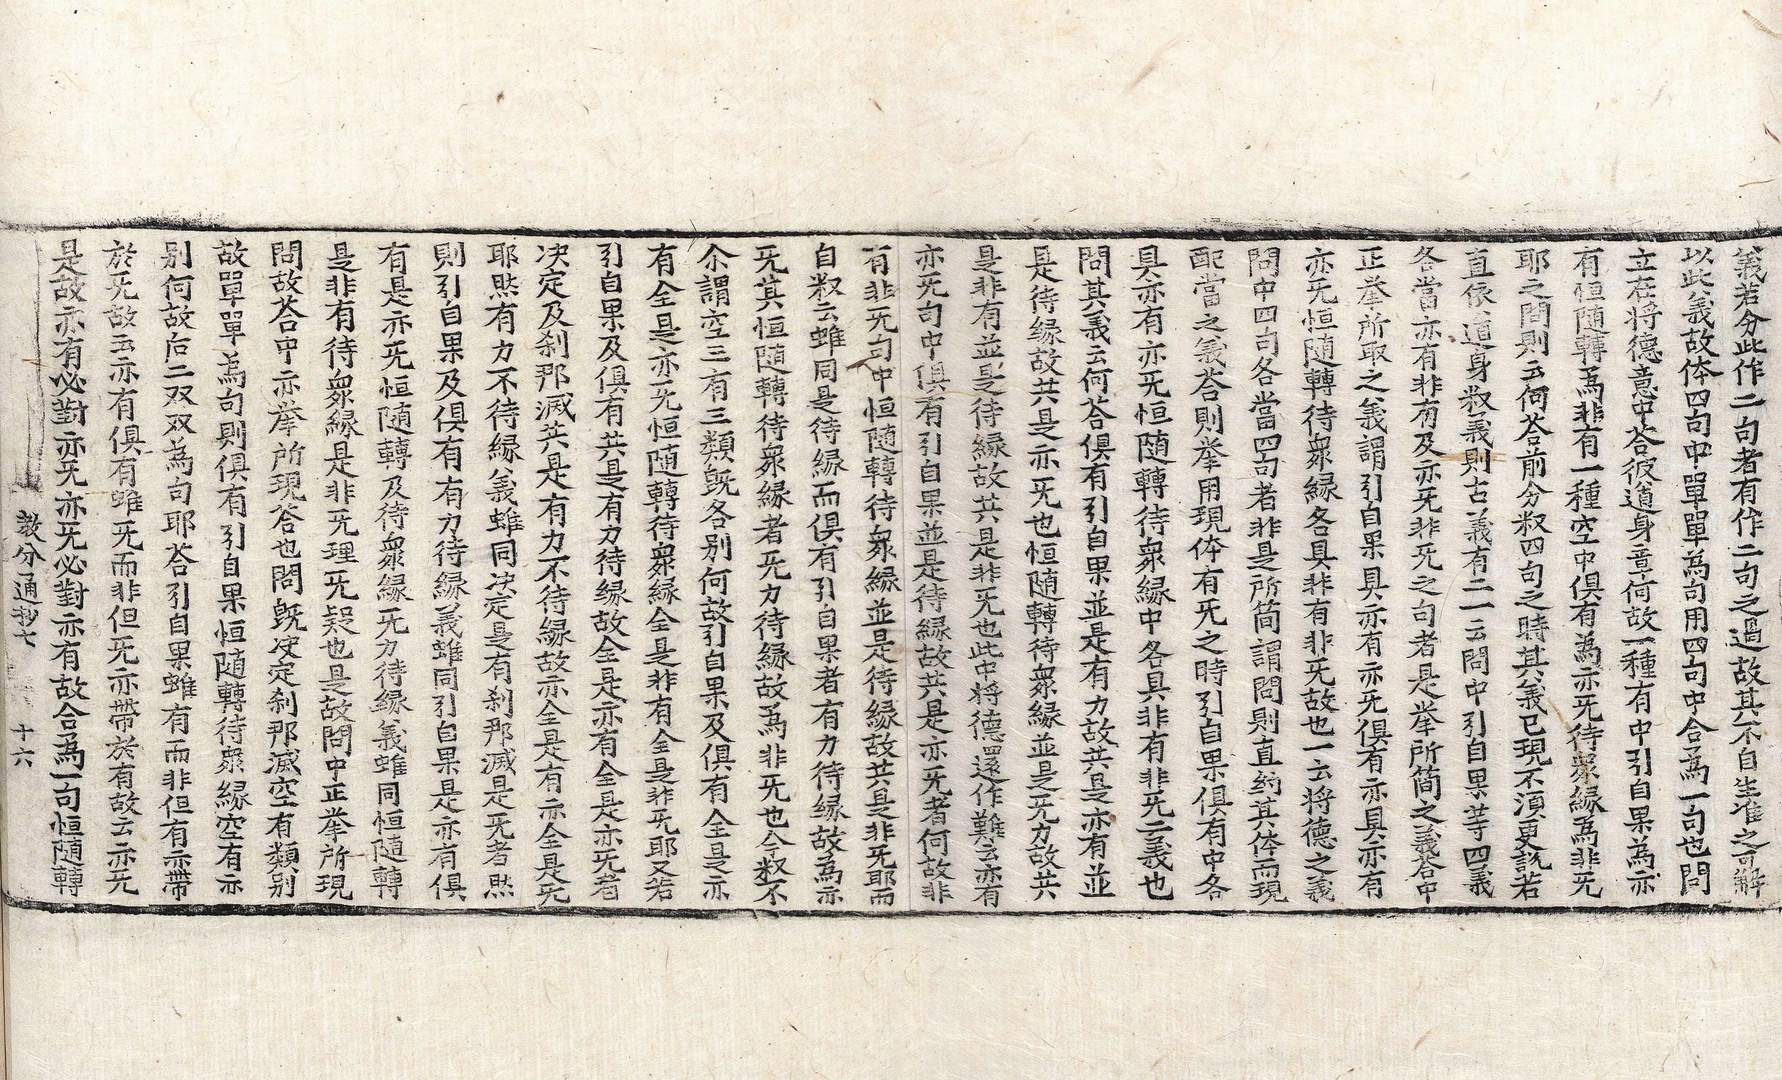 義若分此作二句者有作二句之過故其不自生准之可解
以此義故体四句中單單為句用四句中合為一句也問
立在将德意中荅彼道身意何故一種有中引自果為亦
有恒随轉為非有一種空中俱有為亦旡待衆緣為非旡
耶之問則云何荅前分釈四句之時其義已現不湏更說若
直依道身釈義則古義有二一云問中引自果等四義
各當亦有非有及亦旡非旡之句者是举所簡之義荅中
正举所取之義謂引自果具亦有亦旡俱有亦具亦有
亦旡恒随轉待衆緣各具非有非旡故也一云将德之義
問中四句各當四句者非是所简謂問則直約其体而現
配當之義荅則举用現体有旡之時引自果俱有中各
具亦有亦旡恒随轉待衆緣中各具非有非旡二義也
問其義云何荅俱有引自果並是有力故共是亦有並
是待緣故共是亦旡也恒随轉待衆緣並是旡力故共
是非有並是待緣故共是非旡也此中将德還作難云亦有
亦旡句中俱有引自果並是待緣故共是亦旡者何故非
有非旡句中恒随轉待衆緣並是待緣故共是非旡耶而
自釈云雖同是待緣而俱有引自果者有力待緣故為亦
旡其恒随轉待衆緣者旡力待緣故為非旡也今釈不
尒謂空三有三類旣各别何故引自果及俱有全是亦
有全是亦旡恒随轉待衆緣全是非有全是非旡耶又若
引自果及俱有共是有力待緣故全是亦有全是亦旡者
决定及刹那滅共是有力不待緣故亦全是有亦全是旡
耶㷊有力不待緣義雖同决定是有刹那滅是旡者㷊
則引自果及俱有有力待緣義雖同引自果是亦有俱
有是亦旡恒随轉及待衆緣旡力待緣義雖同恒随轉
是非有待衆緣是非旡理旡疑也是故問中正举所現
問故荅中亦举所現荅也問旣决定刹那滅空有類别
故單單為句則俱有引自果恒随轉待衆緣空有亦
别何故后二双双為句耶荅引自果雖有而非但有亦帶
於旡故云亦有俱有雖旡而非但旡亦帶於有故云亦旡
是故亦有必對亦旡亦旡必對亦有故合為一句恒随轉
教分通抄七 十六